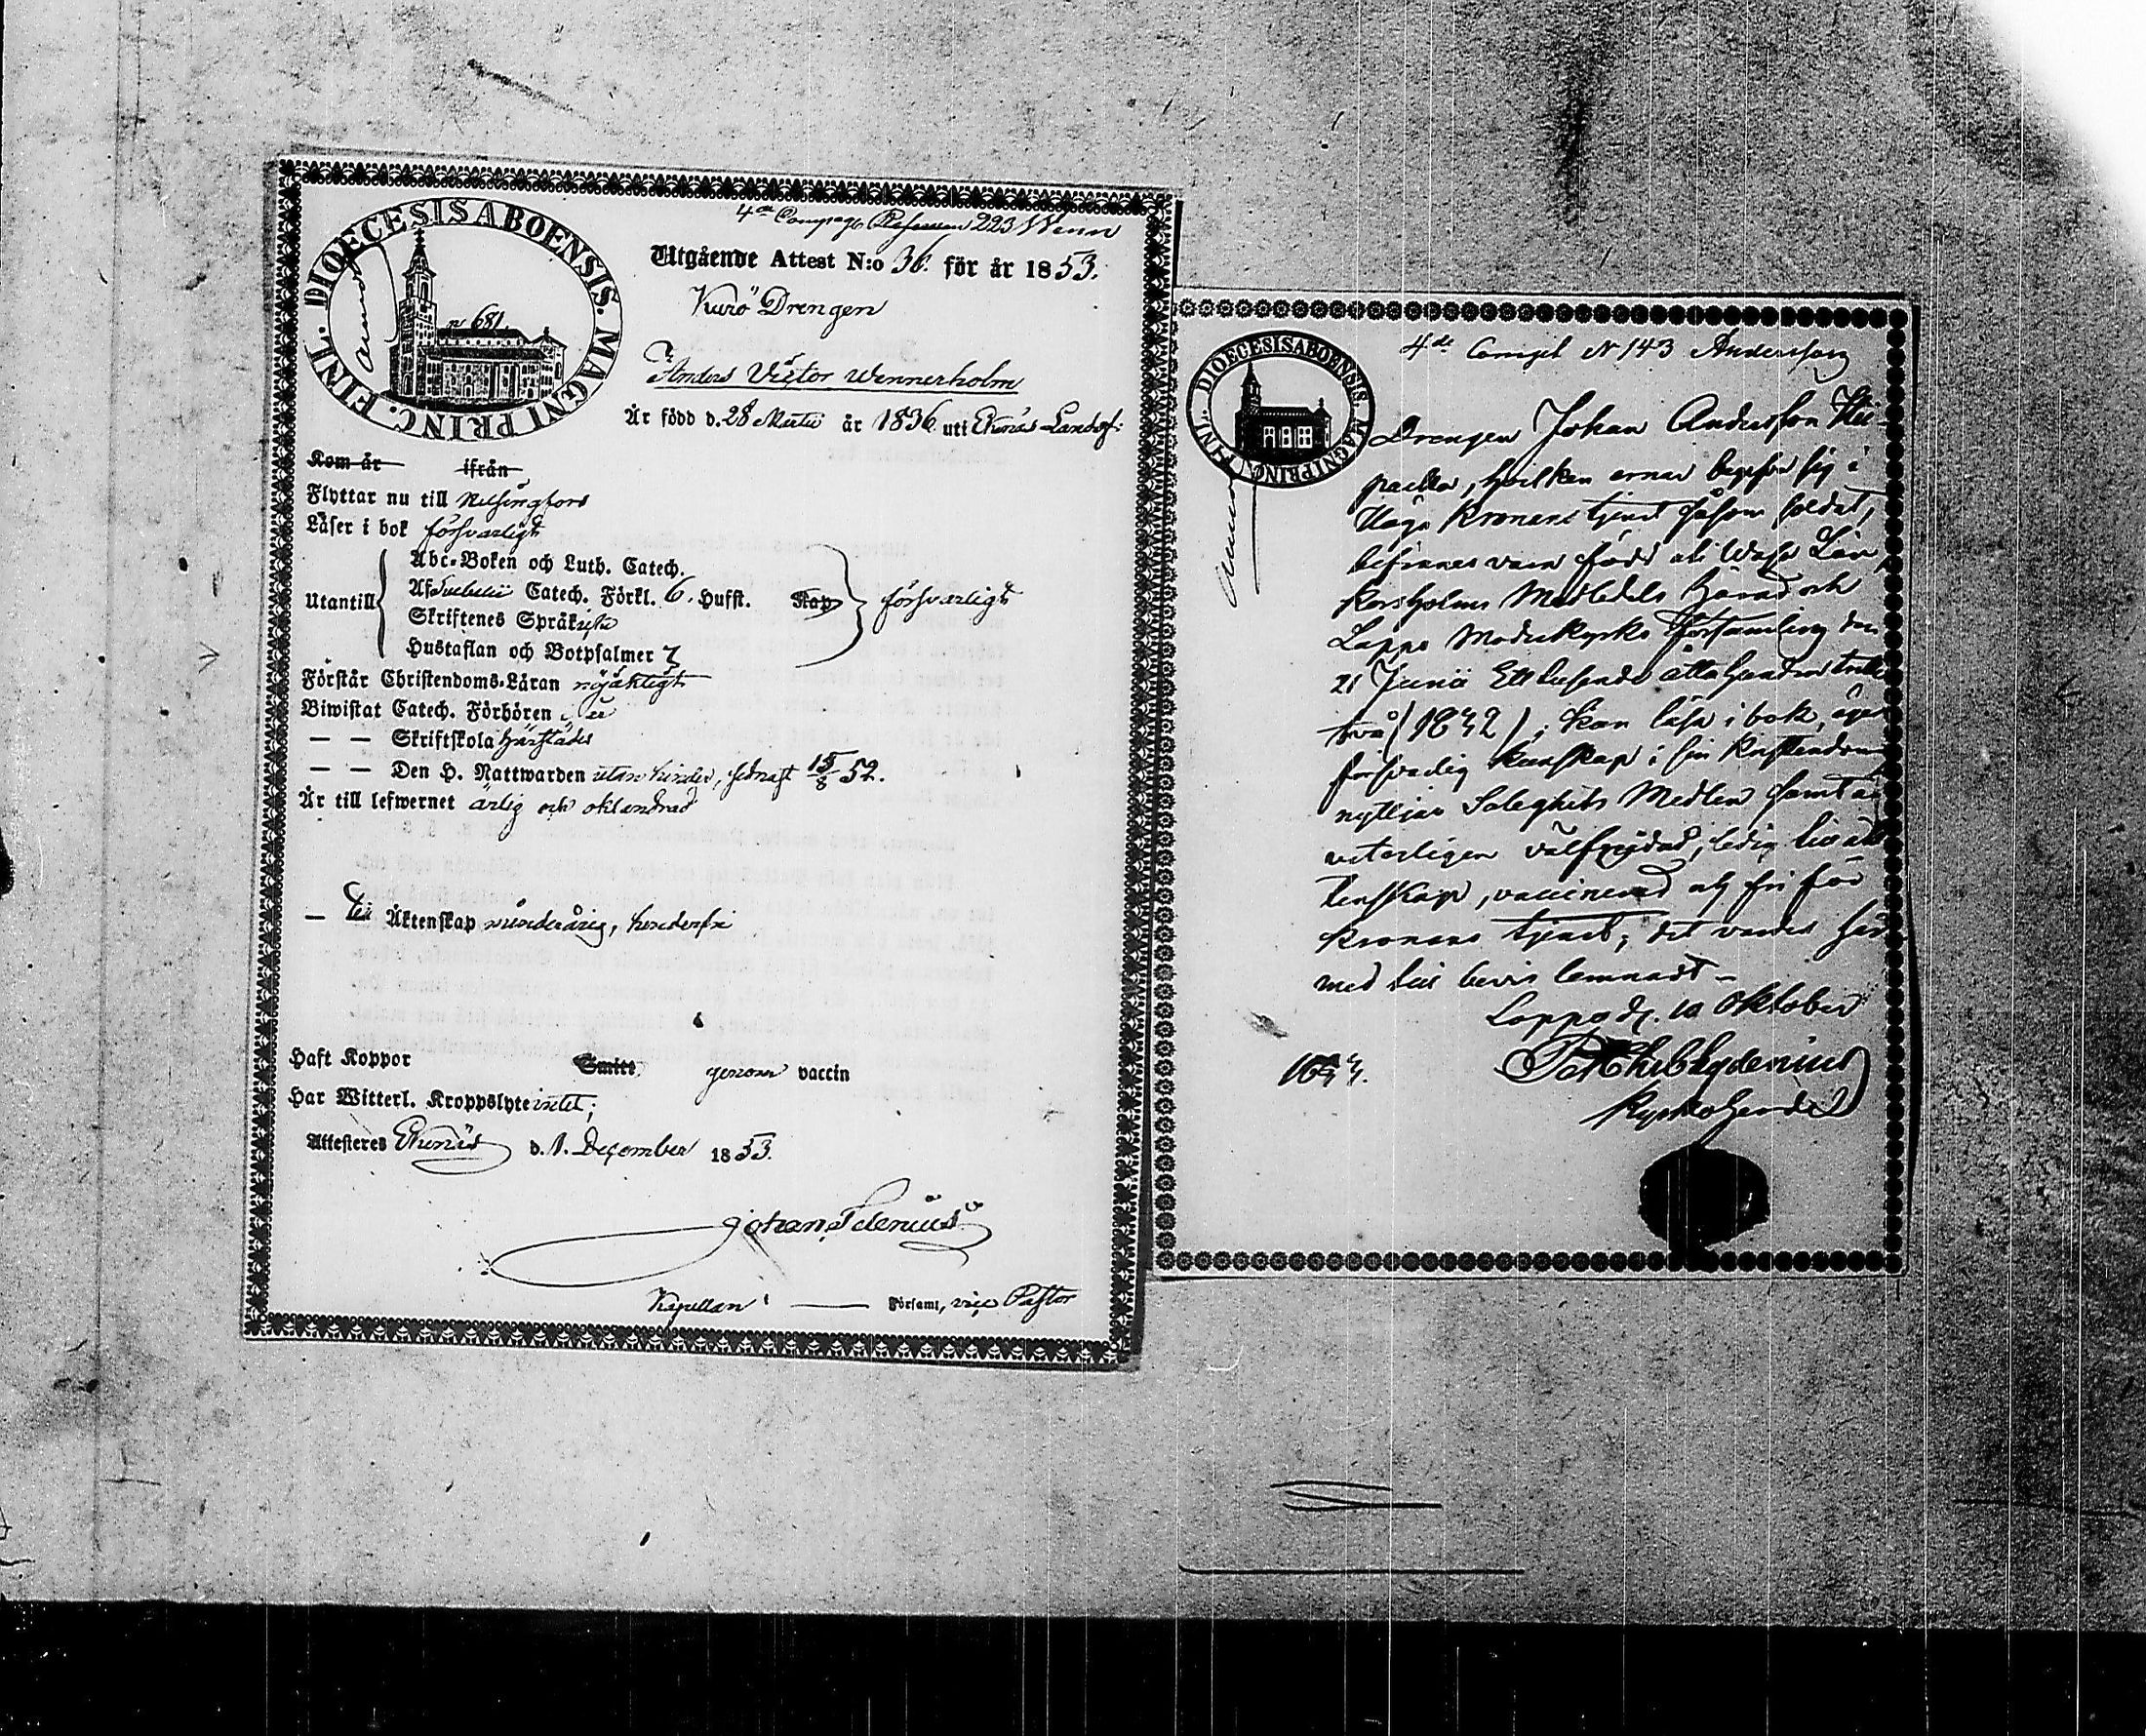 DIOECESIS ABOENSIS. MAGNI PRINC. FINL.
n 681
4de Compagn 223 Wenn
Utgående Attest N:o 36. för år 1853.
Kurö Drengen
Anders Victor Wennerholm
Är född d. 28 Martii år 1836 uti Ekenäs Landsf:
Kom år ifrån
Flyttar nu till Helsingfors
Läser i bok försvarligt
Abc-Boken och Luth. Catech.
Utantill Af Svebelii Catech. Förkl. 6. Hufst. Kap försvarligt
Skriftenes Språk
Hustaflan och Botpsalmer 7
Förstår Christendoms-Läran nöjaktigt
Biwistat Catech. Förhören
— — Skriftskola härstädes
— — Den H. Nattwarden utan hinder, sednast 15/8 52.
Är till lefwernet ärlig och oklandrad
— till Äktenskap minderårig, hinderfri
Haft Koppor Smitt genom vaccin
Har Witterl. Kroppslyte intet;
Attesteres Ekenäs d. 1. December 1853.
Johan Selenius
Kapellan i — Församl, vice Pastor
DIOECESIS ABOENSIS. MAGNI PRINC. FINL.
4de Compt N 143 Andersson
Drengen Johan Andersson
hvilken ernar begifva sig i
Höga Kronans tjenst såsom soldat,
befinnes vara född uti Wasa Län,
Korsholms Medledels Härad och
Lappo Moderkyrko Församling den
21 Junii Ett tusende åtta hundra trettio
två (1832); kan läsa i bok, äger
försvarlig kunskap i sin Kristendom
nyttjar Salighets Medlen samt är
veterligen välfrejdad, ledig till äk
tenskap, vaccinerad och fri för
Kronans tjenst; det varder här
med till bevis lemnadt —
Lappo d. 10 Oktober
Kyrkoherde